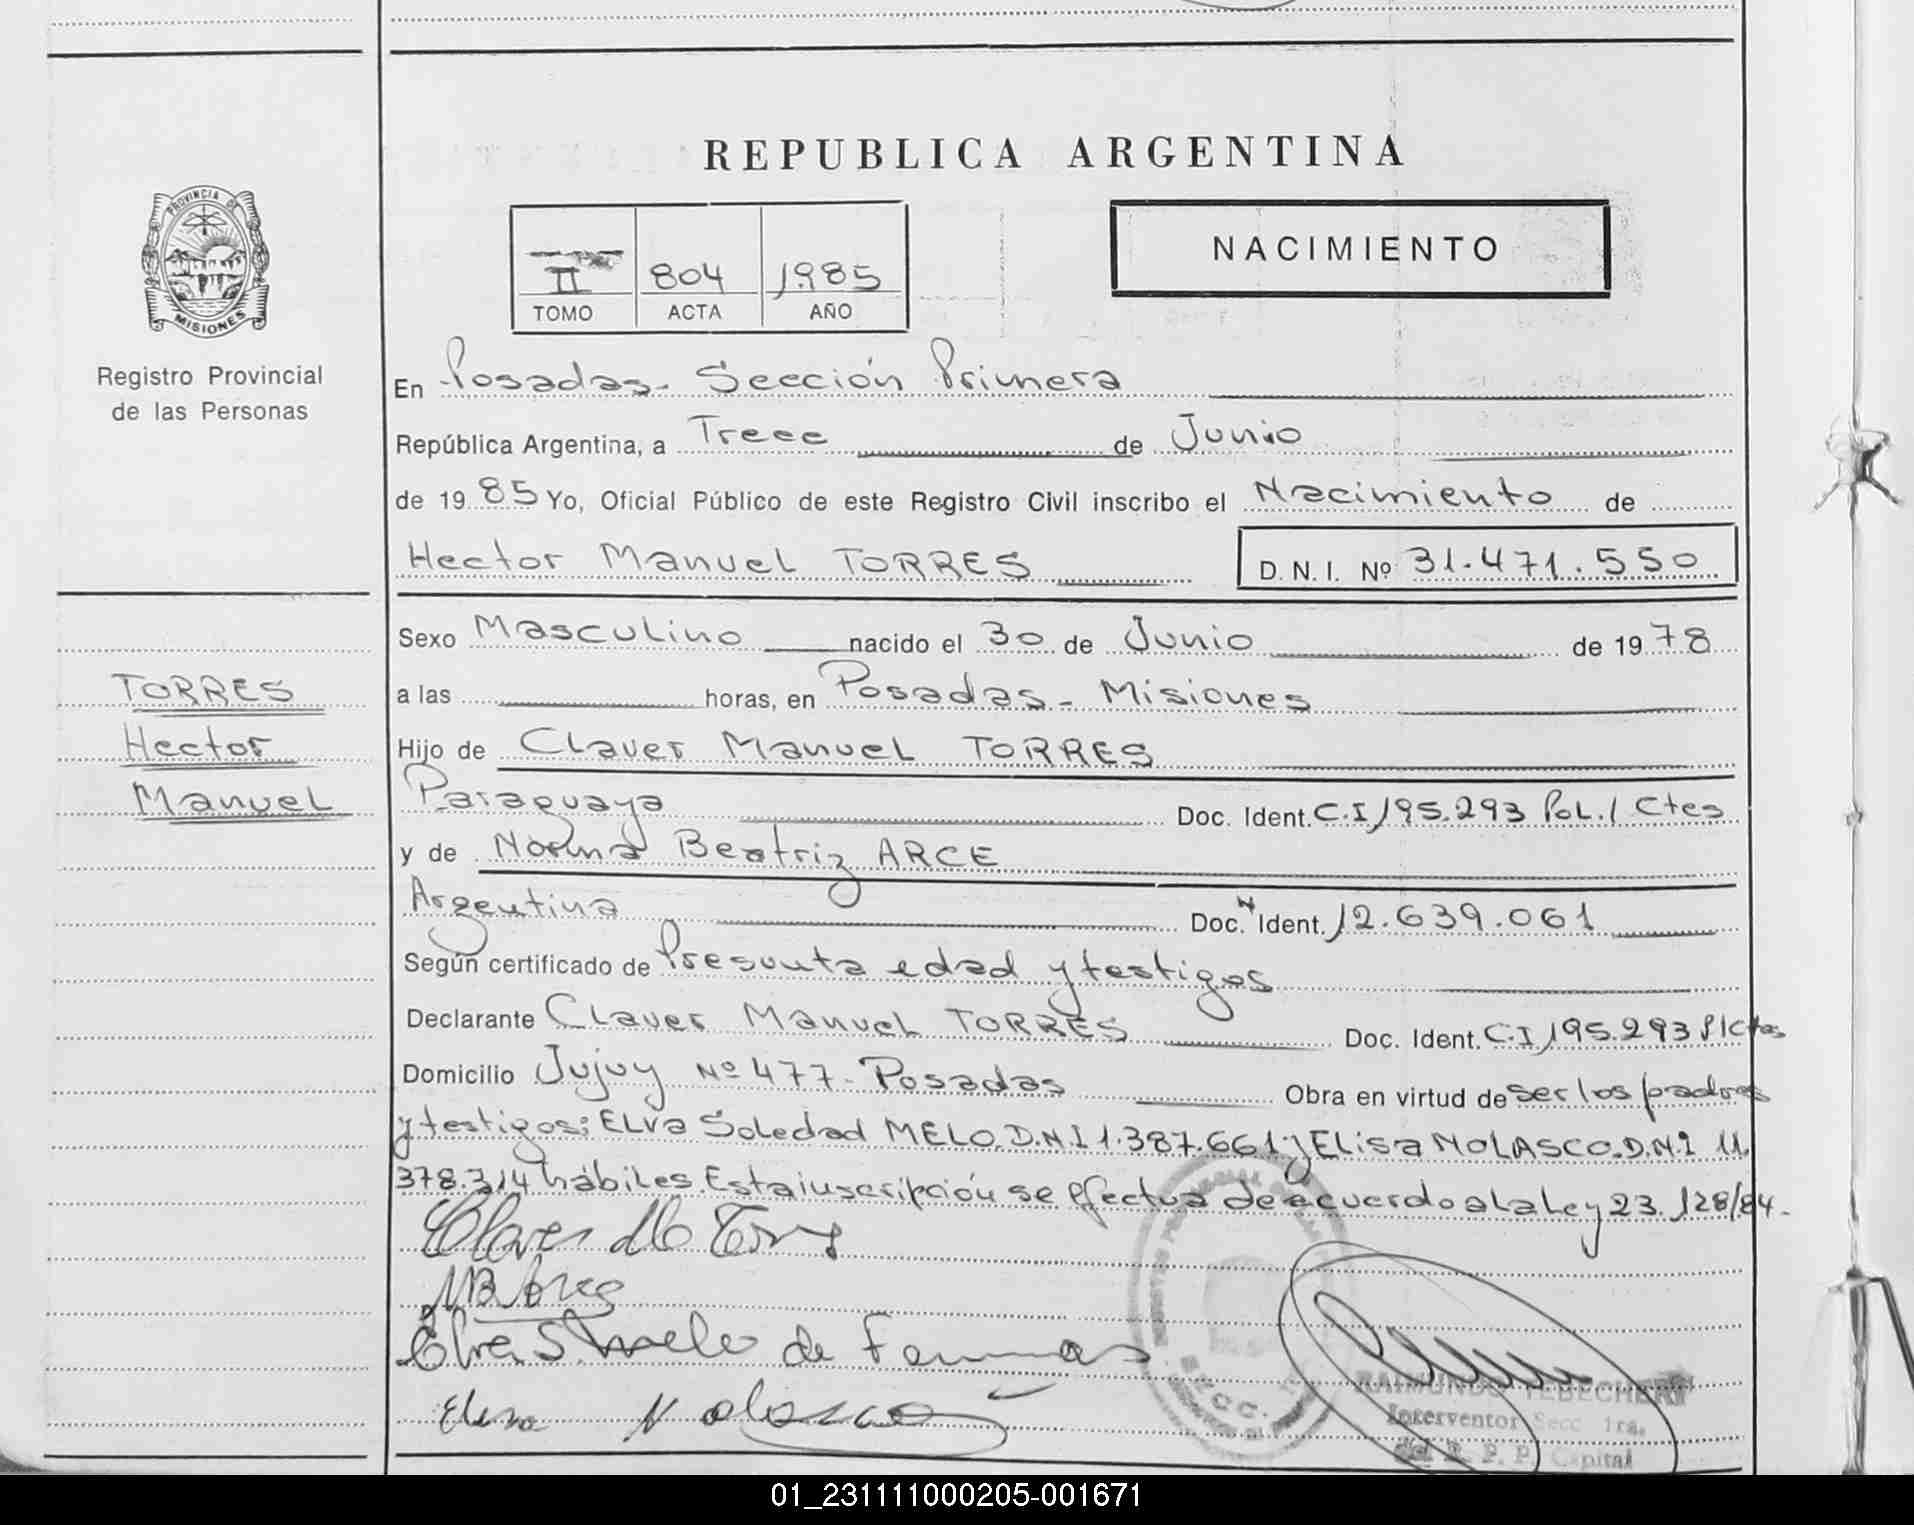 REPUBLICA ARGENTINA
PROVINCIA DE
MISIONES
Registro Provincial
de las Personas
II 804 1985
TOMO ACTA AÑO
NACIMIENTO
En Posadas - Sección Primera
República Argentina, a Trece de Junio
de 19 85 Yo, Oficial Público de este Registro Civil inscribo el Nacimiento de
Hector Manuel TORRES D. N. I. Nº 31.471.550
Sexo Masculino nacido el 30 de Junio de 19 78
a las horas, en Posadas - Misiones
TORRES
Hector
Manuel
Hijo de Claver Manuel TORRES
Paraguaya Doc. Ident. C.I 195.293 Pol. / Ctes
y de Norma Beatriz ARCE
Argentina Doc. Ident. 12.639.061
Según certificado de Presunta edad y testigos
Declarante Claver Manuel TORRES Doc. Ident. C.I 195.293 P/Ctes
Domicilio Jujuy Nº 477 - Posadas Obra en virtud de ser los padres
y testigos: Elva Soledad MELO. D.N.I 1.387.661 y Elisa NOLASCO. D.N.I 11.
378.314 hábiles. Esta inscripción se efectua de acuerdo a la Ley 23.128/84.-
Claver M Torres
NB Arce
Elva S. Melo de
Elisa Nolasco
RAIMUNDO
Interventor Secc. 1ra.
del R. P. P. Capital
01_231111000205-001671